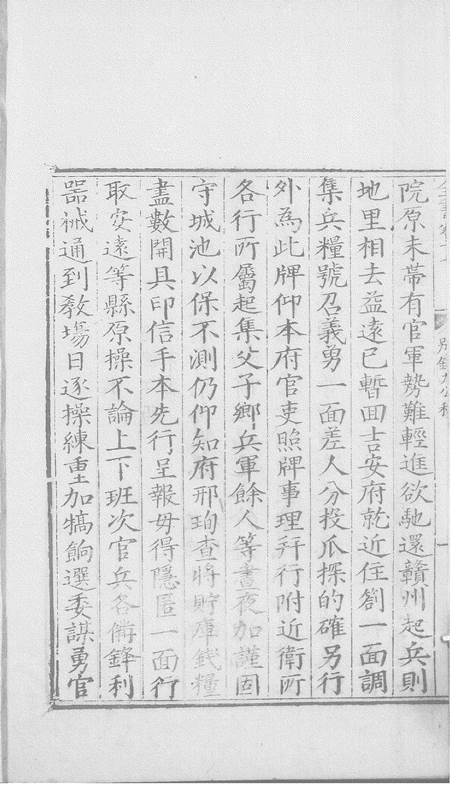 院原未帶有官軍勢難輕進欲馳還贛州起兵則
地里相去益遠已暫囬吉安府就近住劄一面調
集兵糧號召義勇一面差人分投爪探的確另行
外為此牌仰本府官吏照牌事理幷行附近衛所
各行所屬起集父子鄉兵軍餘人等晝夜加謹固
守城池以保不測仍仰知府邢珣查將貯庫錢糧
盡數開具印信手本先行呈報毋得隱匿一面行
取安遠等縣原操不論上下班次官兵各備鋒利
器械通到敎塲日逐操練重加犒餉選委謀勇官